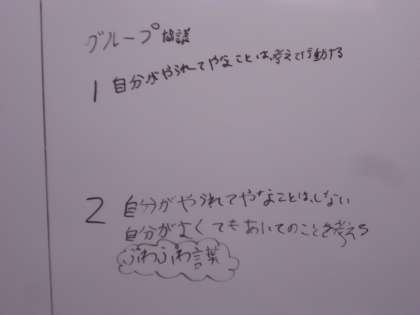 グループ協議
1 自分がやられてやなことは、考えて行動する
2 自分がやられてやなことは、しない
自分がよくてもあいてのことを考える
ふわふわ言葉